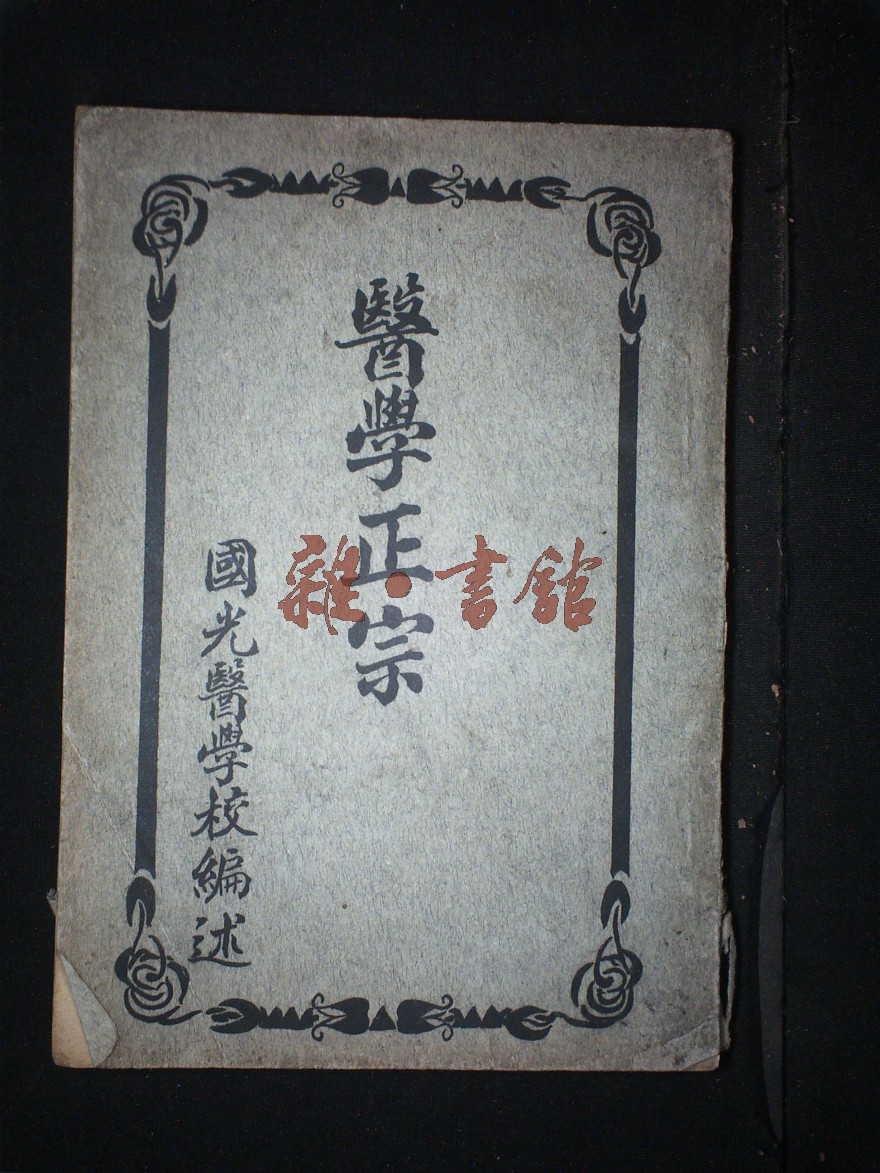 醫學正宗
國光醫學校編述
雜·書館